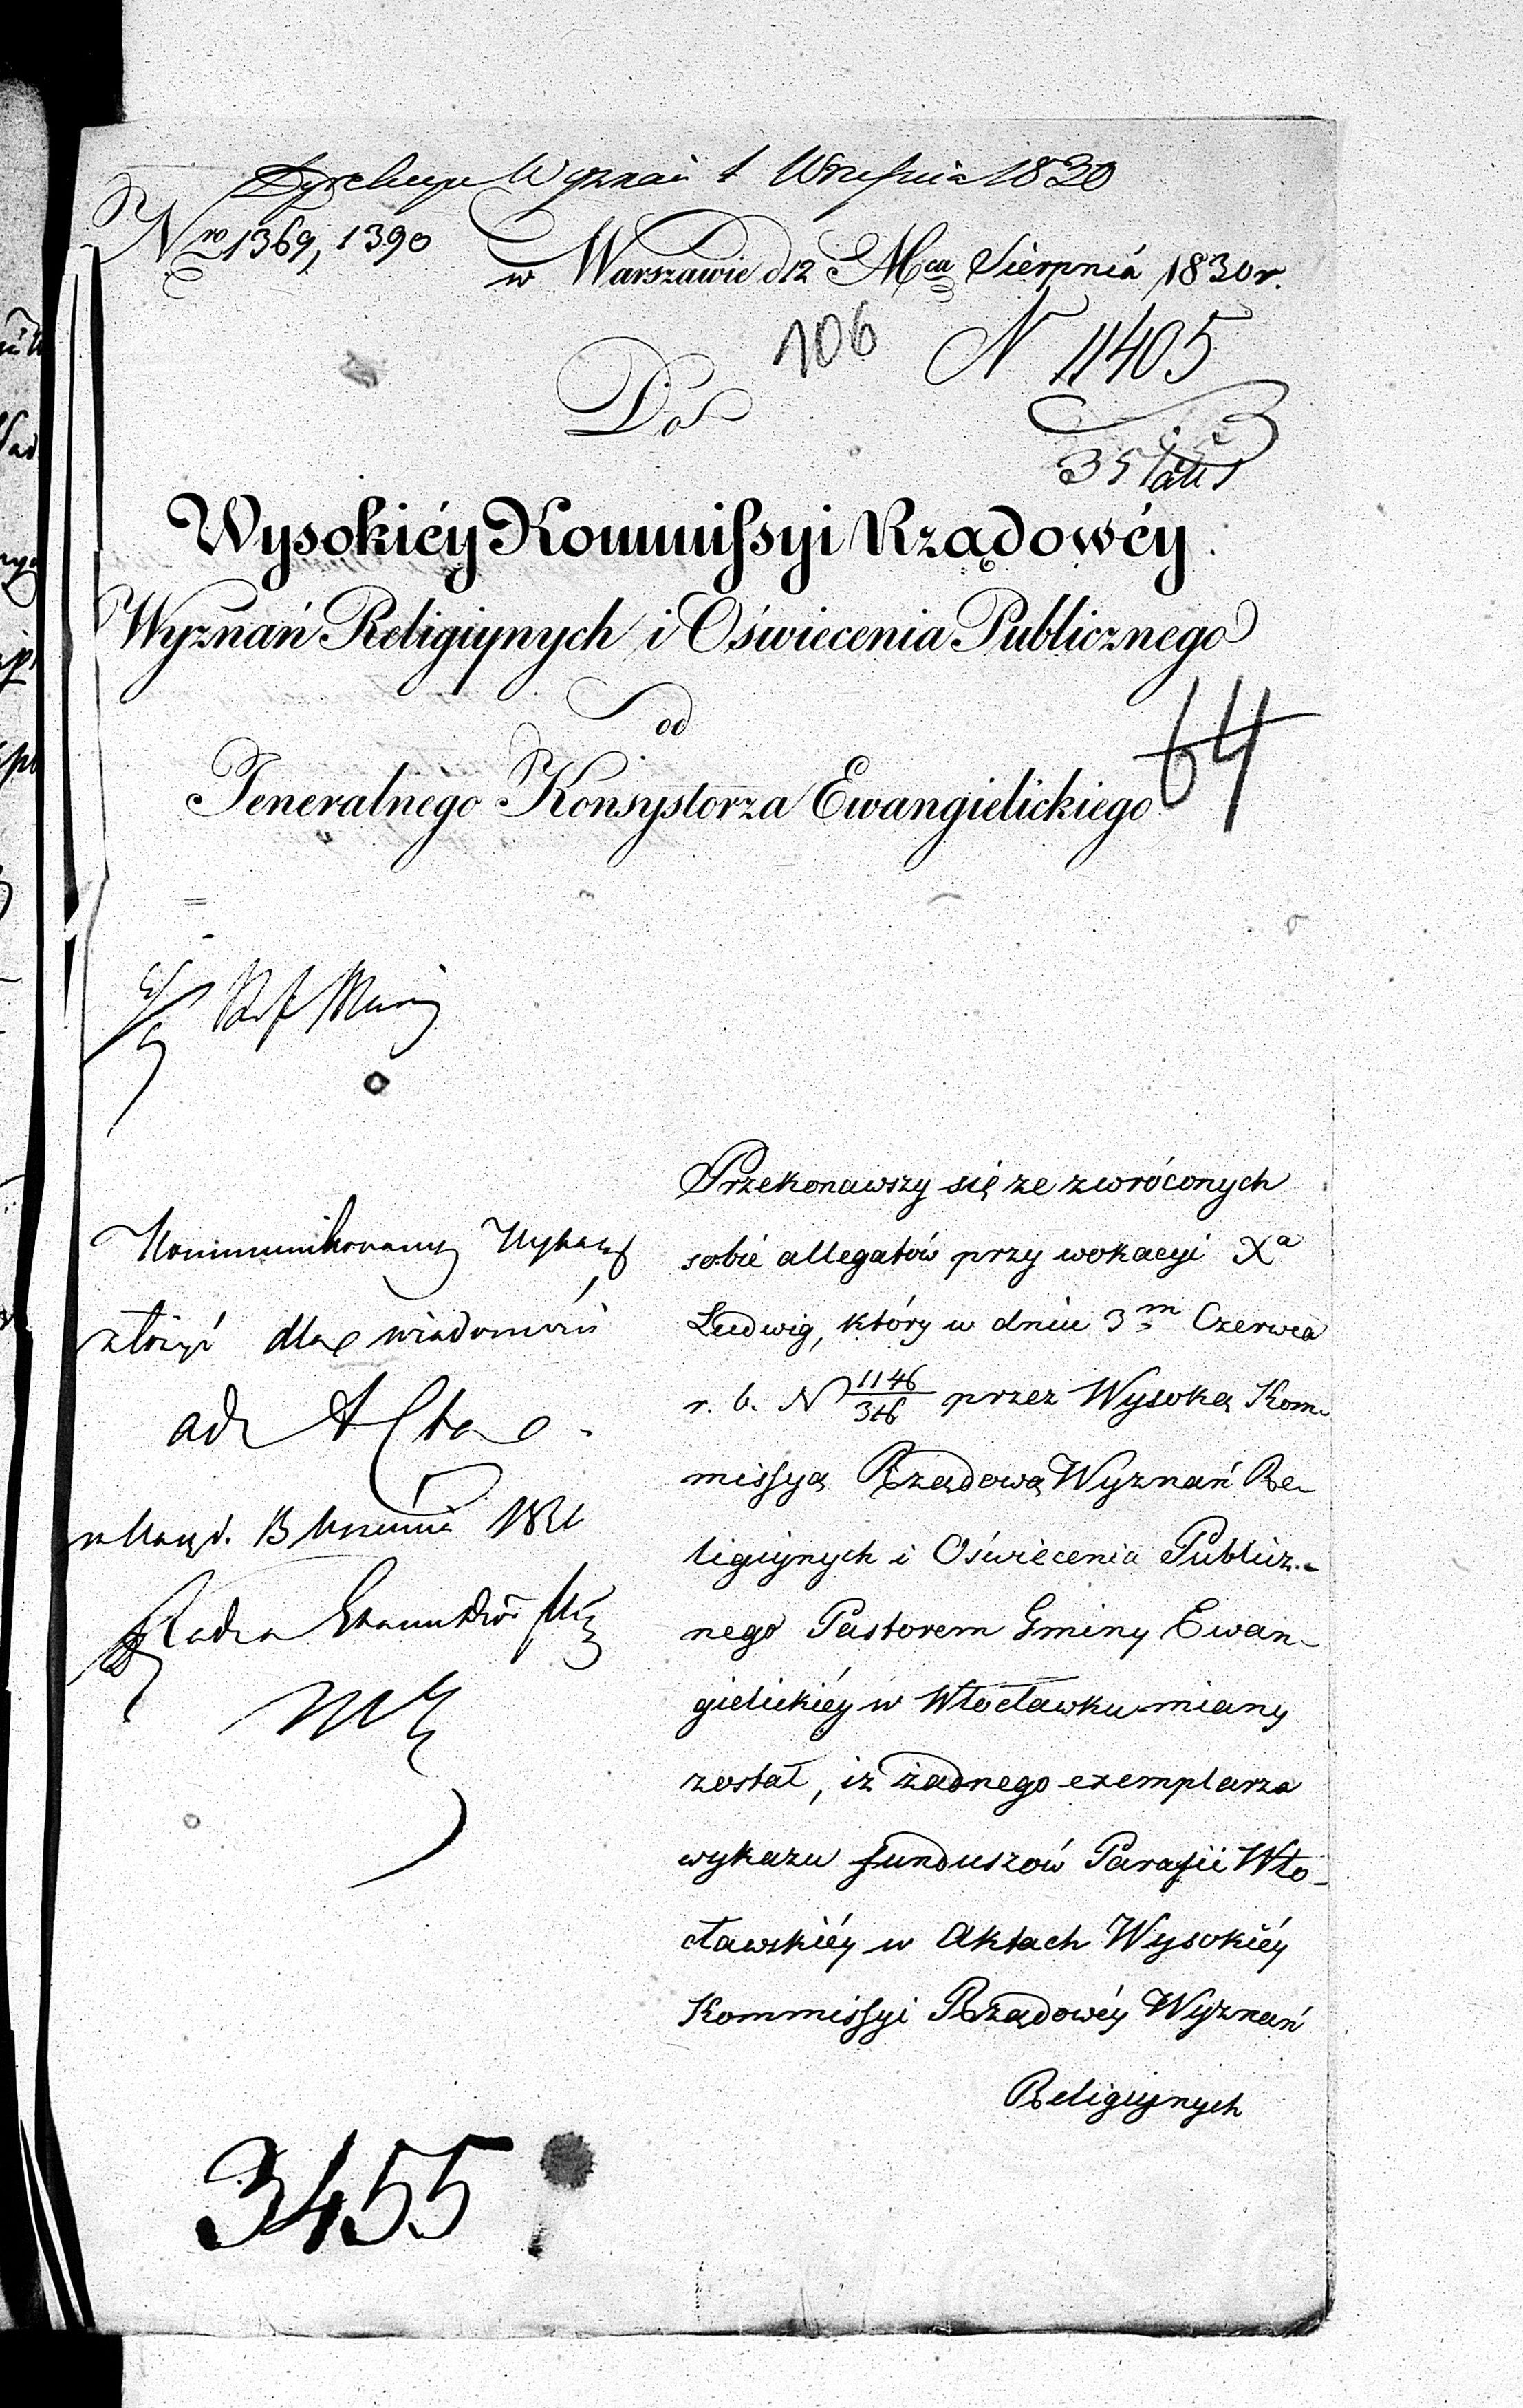 Dyrekcya Wyznań 1 Września 1830
Nro 1369, 1390
w Warszawie d 12 Mca Sierpnia 1830 r.
106 N 11405
Do
Wysokiéy Kommissyi Rządowéy
Wyznań Religiynych i Oświecenia Publicznego
od
64
Jeneralnego Konsystorza Ewangielickiego
Przekonawszy się ze zwróconych
sobie allegatów przy wokacyi Xa
Ludwig, który w dniu 3m Czerwca
r. b. N 1146/316 przez Wysoką Kom-
missyą Rządową Wyznań Re-
ligiynych i Oświecenia Publicz-
nego Pastorem Gminy Ewan-
gielickiéy w Włocławku miany
został, iż żadnego exemplarza
wykazu funduszów Parafii Wło-
cławskiéy w Aktach Wysokiéy
Kommissyi Rządowéy Wyznań
Religiynych
Kommunikowany Wykaz
złożyć dla wiadomości
ad Acta
3455